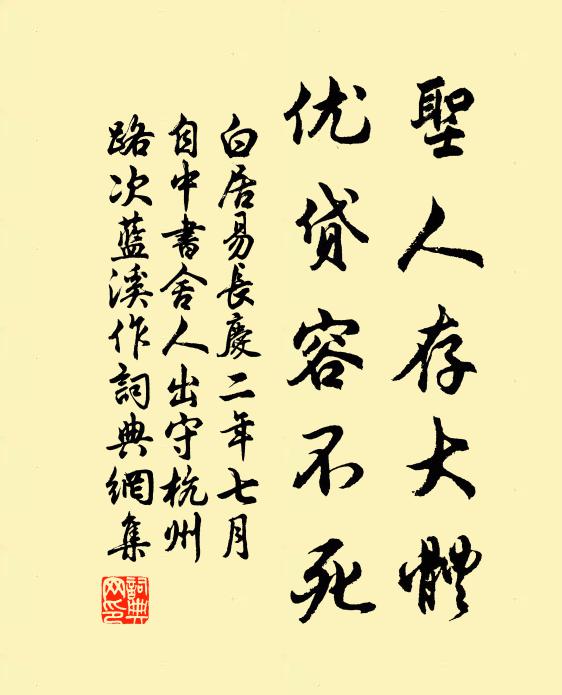 聖人存大體
优贷容不死
白居易長慶二年七月
自中書舍人出守杭州
路次藍溪作詞典網集
詞典网印